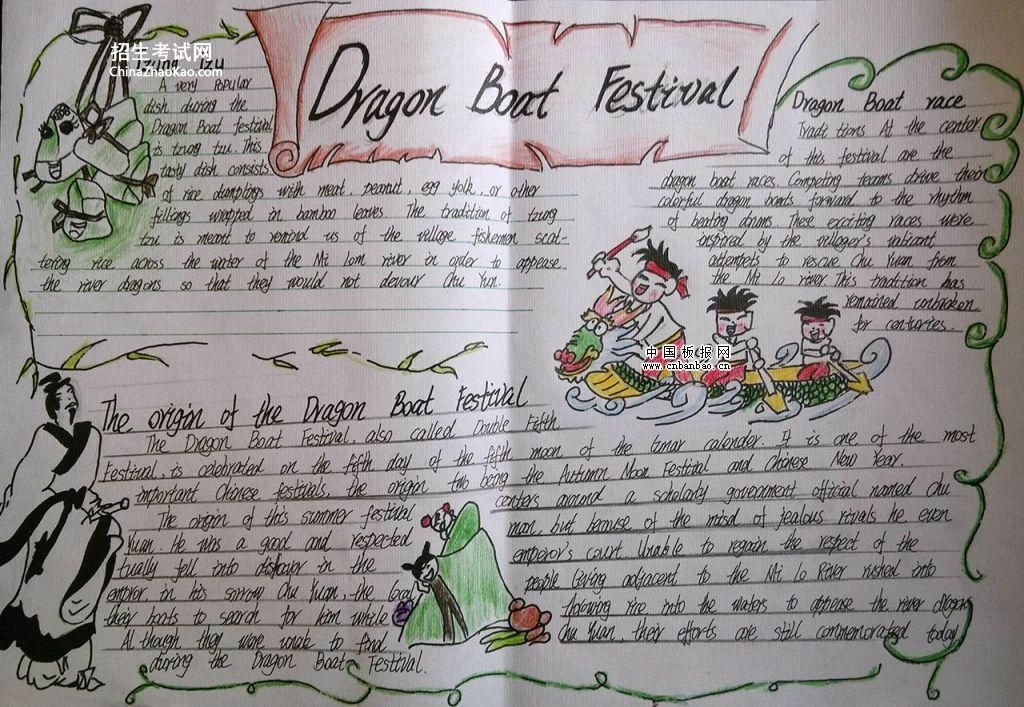 招生考试网
ChinaZhaoKao.com
Tzung Tzu
A very popular
dish during the
Dragon Boat festival
is tzung tzu. This
tasty dish consists
of rice dumplings with meat, peanut, egg yolk, or other
fillings wrapped in bamboo leaves. The tradition of tzung
tzu is meant to remind us of the village fishermen scat-
tering rice across the water of the Mi Lom river in order to appease
the river dragons so that they would not devour Chu Yun.
Dragon Boat Festival
Dragon Boat race
Traditions At the center
of this festival are the
dragon boat races. Competing teams drive their
colorful dragon boats forward to the rhythm
of beating drums. These exciting races were
inspired by the villager's valicant
attempts to rescue Chu Yuan from
the Mi Lo river. This tradition has
remained unbroken
for centuries.
中国板报网
www.cnbanbao.cn
The origin of the Dragon Boat Festival
The Dragon Boat Festival, also called Double Fifth
Festival, is celebrated on the fifth day of the fifth moon of the lunar calender. It is one of the most
important Chinese festivals, the origin two being the Autumn Moon Festival and Chinese New Year.
The origin of this summer festival centers around a scholarly government official named Chu
Yuan. He was a good and respected man, but because of the misd of jealous rivals he even
tually fell into disfavor in the emperor's court. Unable to regain the respect of the
empror in his sorrow Chu Yuan, the local people living adjacent to the Mi Lo River rushed into
their boats to search for him while throwing rice into the waters to appease the river dragons
Al though they were unable to find Chu Yuan, their efforts are still commemorated today
during the Dragon Boat Festival.